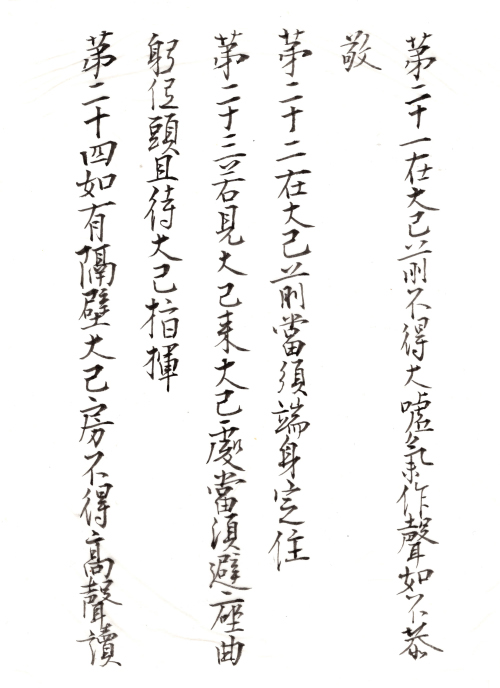 第二十一在大己前不得大嘘氣作聲如不恭
敬
第二十二在大己前當須端身定住
第二十三若見大己来大己處當須避座曲
躬低頭且待大己指揮
第二十四如有隔壁大己房不得高聲讀